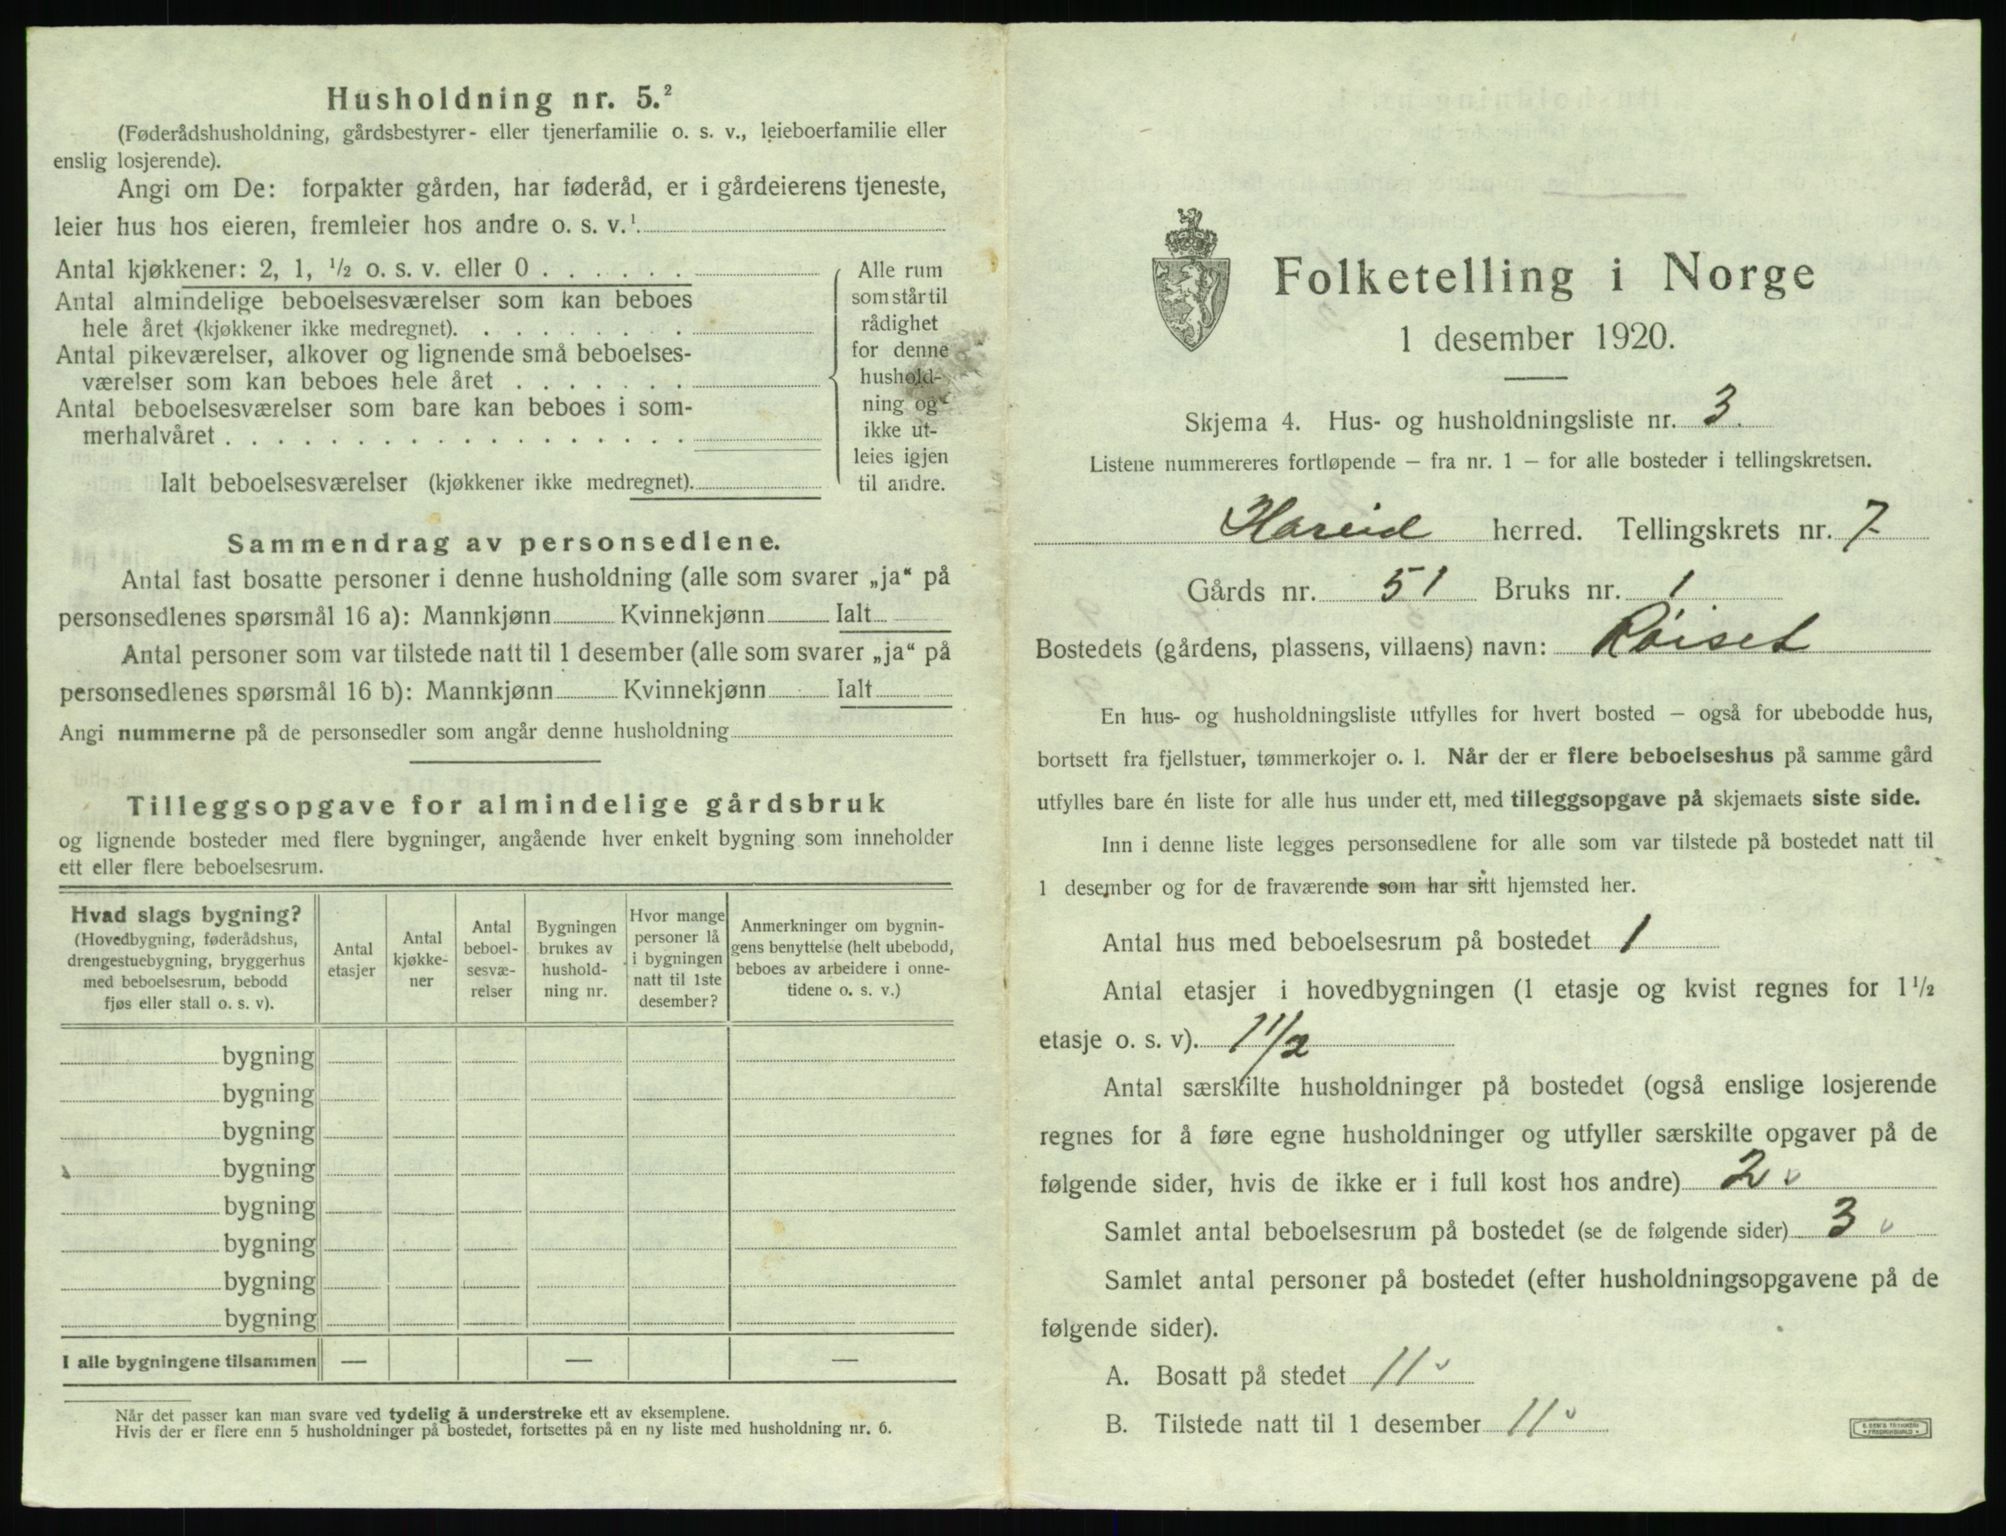 Husholdning nr. 5.²
(Føderådshusholdning, gårdsbestyrer- eller tjenerfamilie o. s. v., leieboerfamilie eller
enslig losjerende).
Angi om De: forpakter gården, har føderåd, er i gårdeierens tjeneste,
leier hus hos eieren, fremleier hos andre o. s. v.¹
Antal kjøkkener: 2, 1, ½ o. s. v. eller 0 . . . . . .
Antal almindelige beboelsesværelser som kan beboes
hele året (kjøkkener ikke medregnet). . . . . . . . .
Antal pikeværelser, alkover og lignende små beboelses-
værelser som kan beboes hele året . . . . . . .
Antal beboelsesværelser som bare kan beboes i som-
merhalvåret . . . . . . . . . . . . . . . . . .
Ialt beboelsesværelser (kjøkkener ikke medregnet).
Alle rum
som står til
rådighet
for denne
hushold-
ning og
ikke ut-
leies igjen
til andre.
Sammendrag av personsedlene.
Antal fast bosatte personer i denne husholdning (alle som svarer „ja“ på
personsedlenes spørsmål 16 a): Mannkjønn Kvinnekjønn Ialt
Antal personer som var tilstede natt til 1 desember (alle som svarer „ja“ på
personsedlenes spørsmål 16 b): Mannkjønn Kvinnekjønn Ialt
Angi nummerne på de personsedler som angår denne husholdning
Tilleggsopgave for almindelige gårdsbruk
og lignende bosteder med flere bygninger, angående hver enkelt bygning som inneholder
ett eller flere beboelsesrum.
Hvad slags bygning?
(Hovedbygning, føderådshus,
drengestuebygning, bryggerhus
med beboelsesrum, bebodd
fjøs eller stall o. s. v).
Antal
etasjer
Antal
kjøkke-
ner
Antal
beboel-
sesvæ-
relser
Bygningen
brukes av
hushold-
ning nr.
Hvor mange
personer lå
i bygningen
natt til 1ste
desember?
Anmerkninger om bygnin-
gens benyttelse (helt ubebodd,
beboes av arbeidere i onne-
tidene o. s. v.)
bygning
bygning
bygning
bygning
bygning
bygning
bygning
bygning
I alle bygningene tilsammen — — —
Når det passer kan man svare ved tydelig å understreke ett av eksemplene.
Hvis der er flere enn 5 husholdninger på bostedet, fortsettes på en ny liste med husholdning nr. 6.
Folketelling i Norge
1 desember 1920.
Skjema 4. Hus- og husholdningsliste nr. 3.
Listene nummereres fortløpende – fra nr. 1 – for alle bosteder i tellingskretsen.
Hareid herred. Tellingskrets nr. 7
Gårds nr. 51 Bruks nr. 1
Bostedets (gårdens, plassens, villaens) navn: Röiset
En hus- og husholdningsliste utfylles for hvert bosted – også for ubebodde hus,
bortsett fra fjellstuer, tømmerkojer o. l. Når der er flere beboelseshus på samme gård
utfylles bare én liste for alle hus under ett, med tilleggsopgave på skjemaets siste side.
Inn i denne liste legges personsedlene for alle som var tilstede på bostedet natt til
1 desember og for de fraværende som har sitt hjemsted her.
Antal hus med beboelsesrum på bostedet 1
Antal etasjer i hovedbygningen (1 etasje og kvist regnes for 1½
etasje o. s. v). 1 1/2
Antal særskilte husholdninger på bostedet (også enslige losjerende
regnes for å føre egne husholdninger og utfyller særskilte opgaver på de
følgende sider, hvis de ikke er i full kost hos andre) 2
Samlet antal beboelsesrum på bostedet (se de følgende sider) 3
Samlet antal personer på bostedet (efter husholdningsopgavene på de
følgende sider).
A. Bosatt på stedet 11
B. Tilstede natt til 1 desember 11